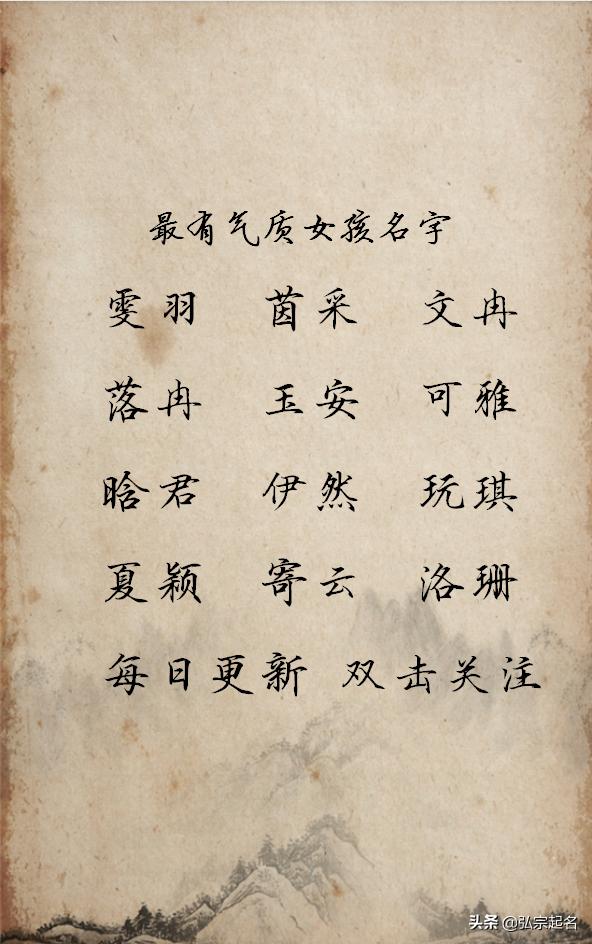 最有气质女孩名字
雯羽 茵采 文冉
落冉 玉安 可雅
晗君 伊然 玩琪
夏颖 寄云 洛珊
每日更新 双击关注
头条 @弘宗起名